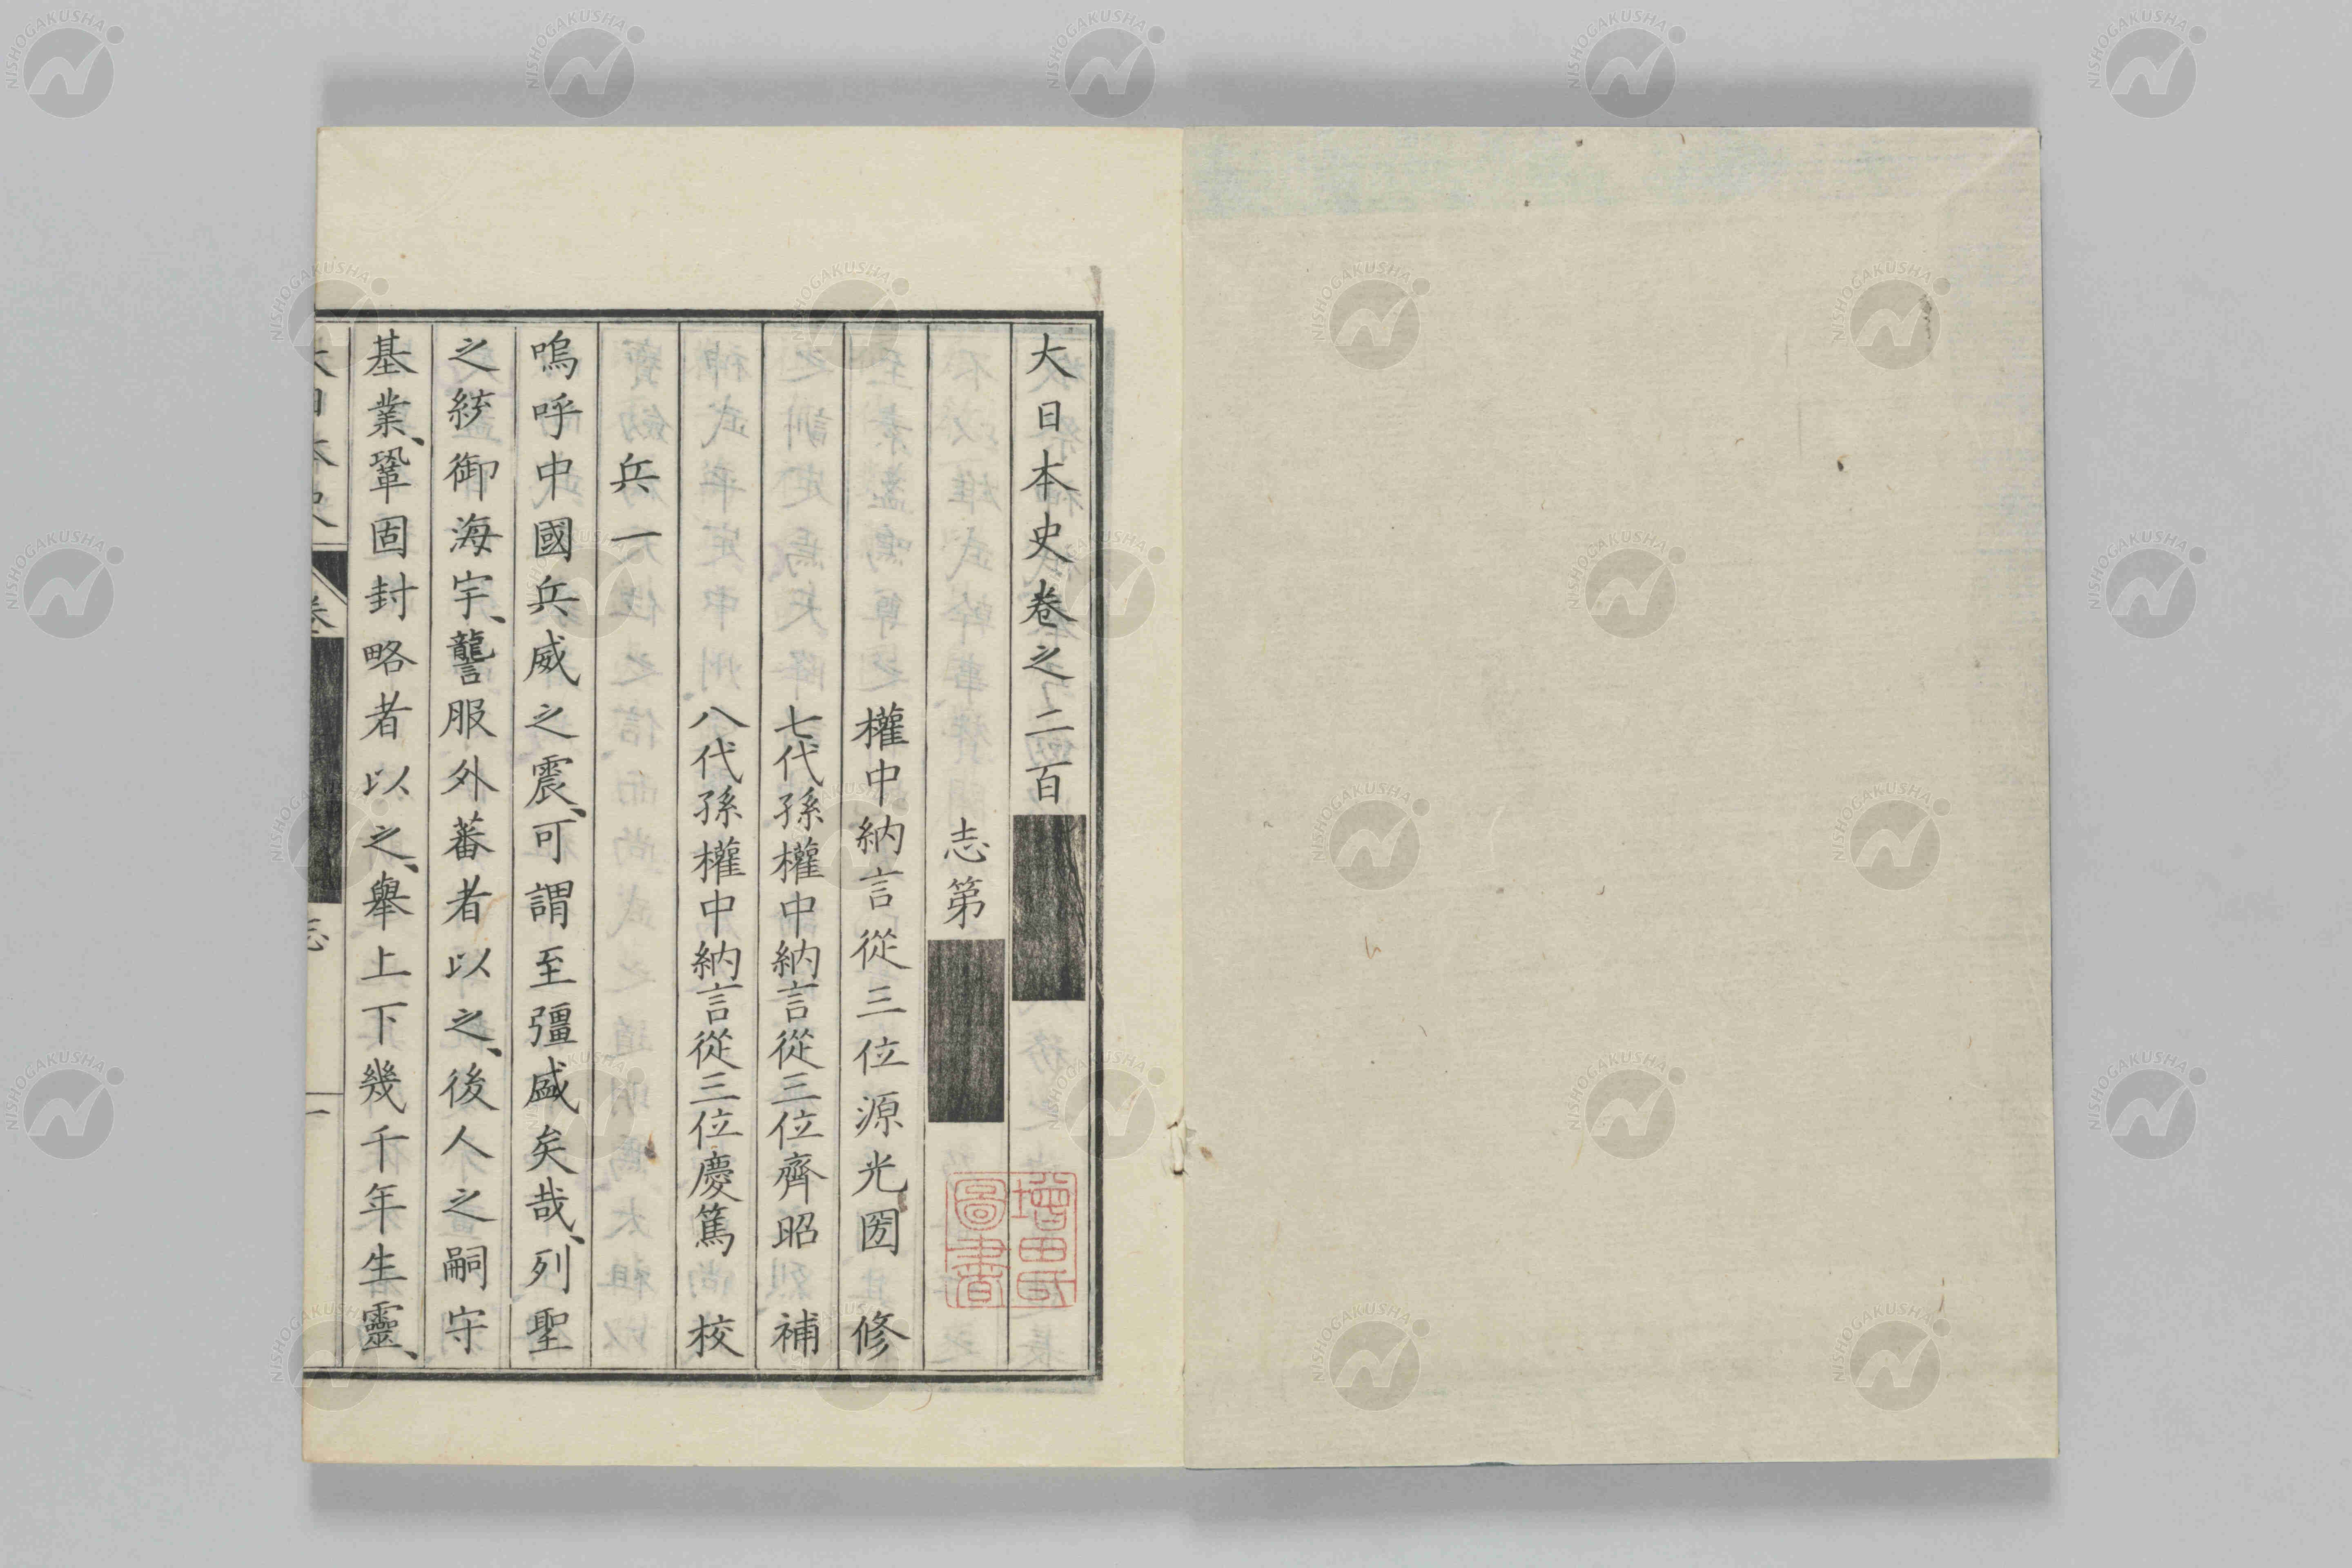 大日本史卷之二百
志第
權中納言從三位源光圀修
七代孫權中納言從三位齊昭補
八代孫權中納言從三位慶篤校
兵一
嗚呼中國兵威之震、可謂至彊盛矣哉、列聖
之統御海宇、讋服外蕃者以之、後人之嗣守
基業、鞏固封略者以之、擧上下幾千年生靈、
大日本史 卷 志 一
增田氏
圖書
NISHOGAKUSHA